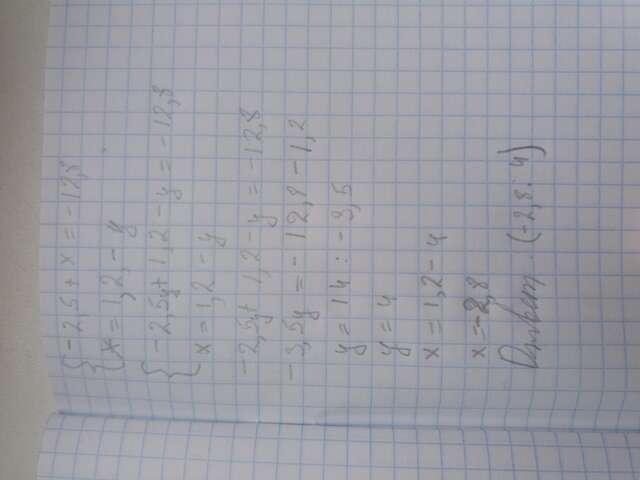 {-2,5 + x = -12,8
x = 1,2, - y
{-2,5y + 1,2 - y = -12,8
x = 1,2 - y
-2,5y + 1,2 - y = -12,8
-3,5y = -12,8 - 1,2
y = 14 : -3,5
y = 4
x = 1,2 - 4
x = -2,8
Ответ: (-2,8; 4)